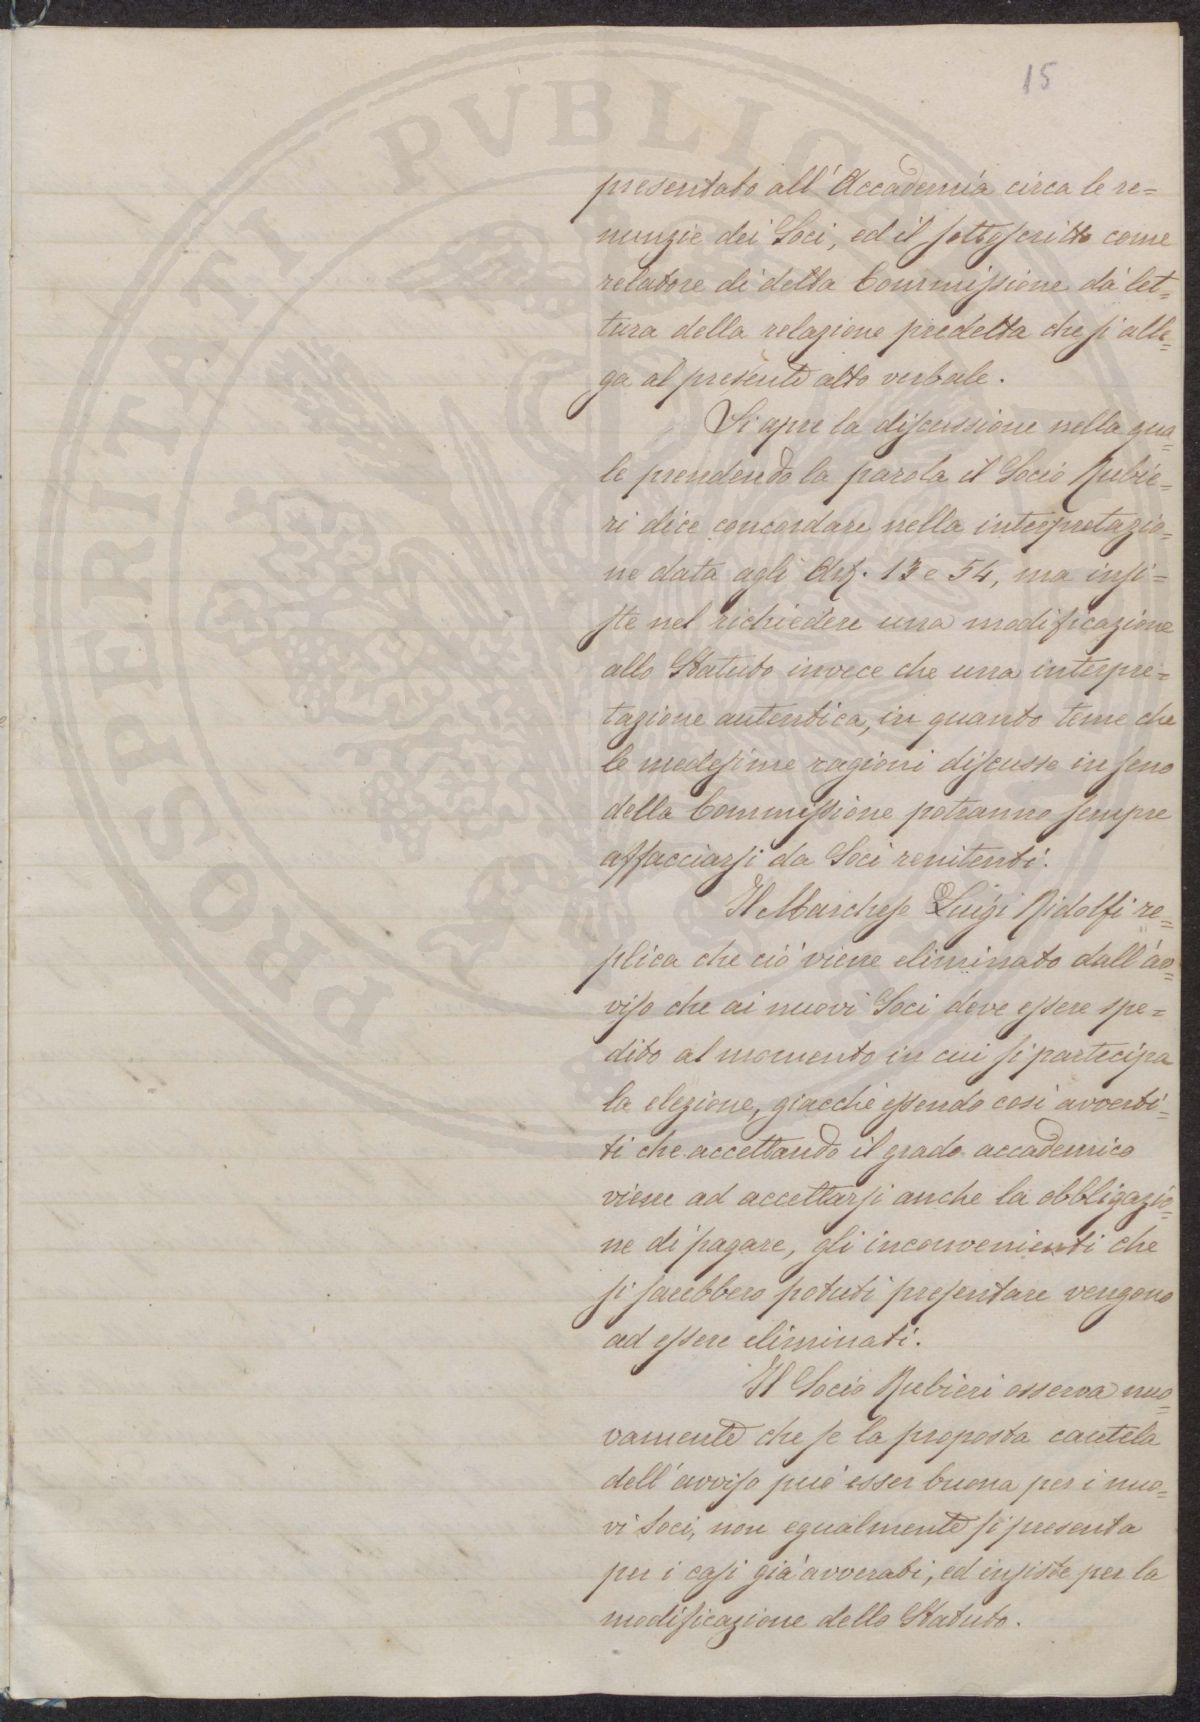 15
PROSPERITATI PVBLICAE
presentato all'Accademia circa le re=
nunzie dei Soci, ed il sottoscritto come
relatore di detta Commissione dà let=
tura della relazione predetta che si alle=
ga al presente atto verbale.
Si apre la discussione nella qua=
le prendendo la parola il Socio Rubie=
ri dice concordare nella interpretazio=
ne data agli Art. 13 e 54, ma insi=
ste nel richiedere una modificazione
allo Statuto invece che una interpre=
tazione autentica, in quanto teme che
le medesime ragioni discusse in seno
della Commissione potranno sempre
affacciarsi da Soci renitenti.
Il Marchese Luigi Ridolfi re=
plica che ciò viene eliminato dall'av=
viso che ai nuovi Soci deve essere spe=
dito al momento in cui si partecipa
la elezione, giacchè essendo così avverti=
ti che accettando il grado accademico
viene ad accettarsi anche la obbligazio=
ne di pagare, gli inconvenienti che
si sarebbero potuti presentare vengono
ad essere eliminati.
Il Socio Rubieri osserva nuo=
vamente che se la proposta cautela
dell'avviso può esser buona per i nuo=
vi Soci, non egualmente si presenta
per i casi già avverati, ed insiste per la
modificazione dello Statuto.